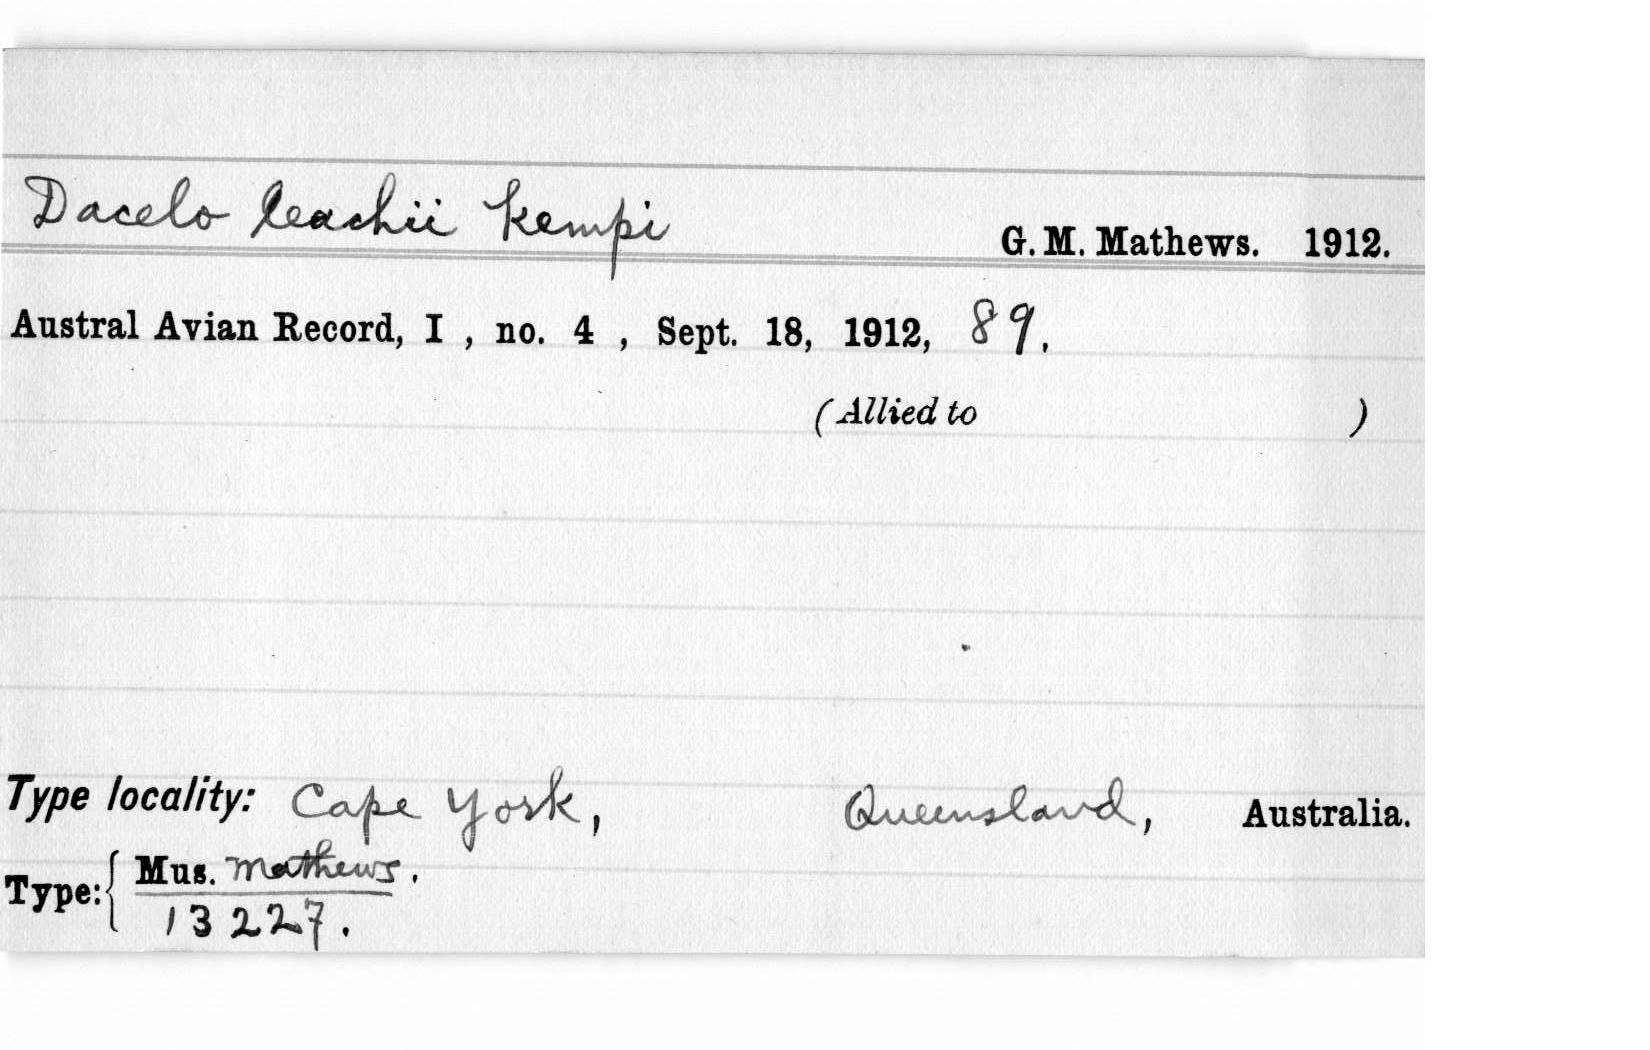 Dacelo leachii kempi G. M. Mathews. 1912.
Austral Avian Record, I , no. 4 , Sept. 18, 1912, 89.
(Allied to )
Type locality: Cape York, Queensland, Australia.
Type: { Mus. Mathews.
13227.